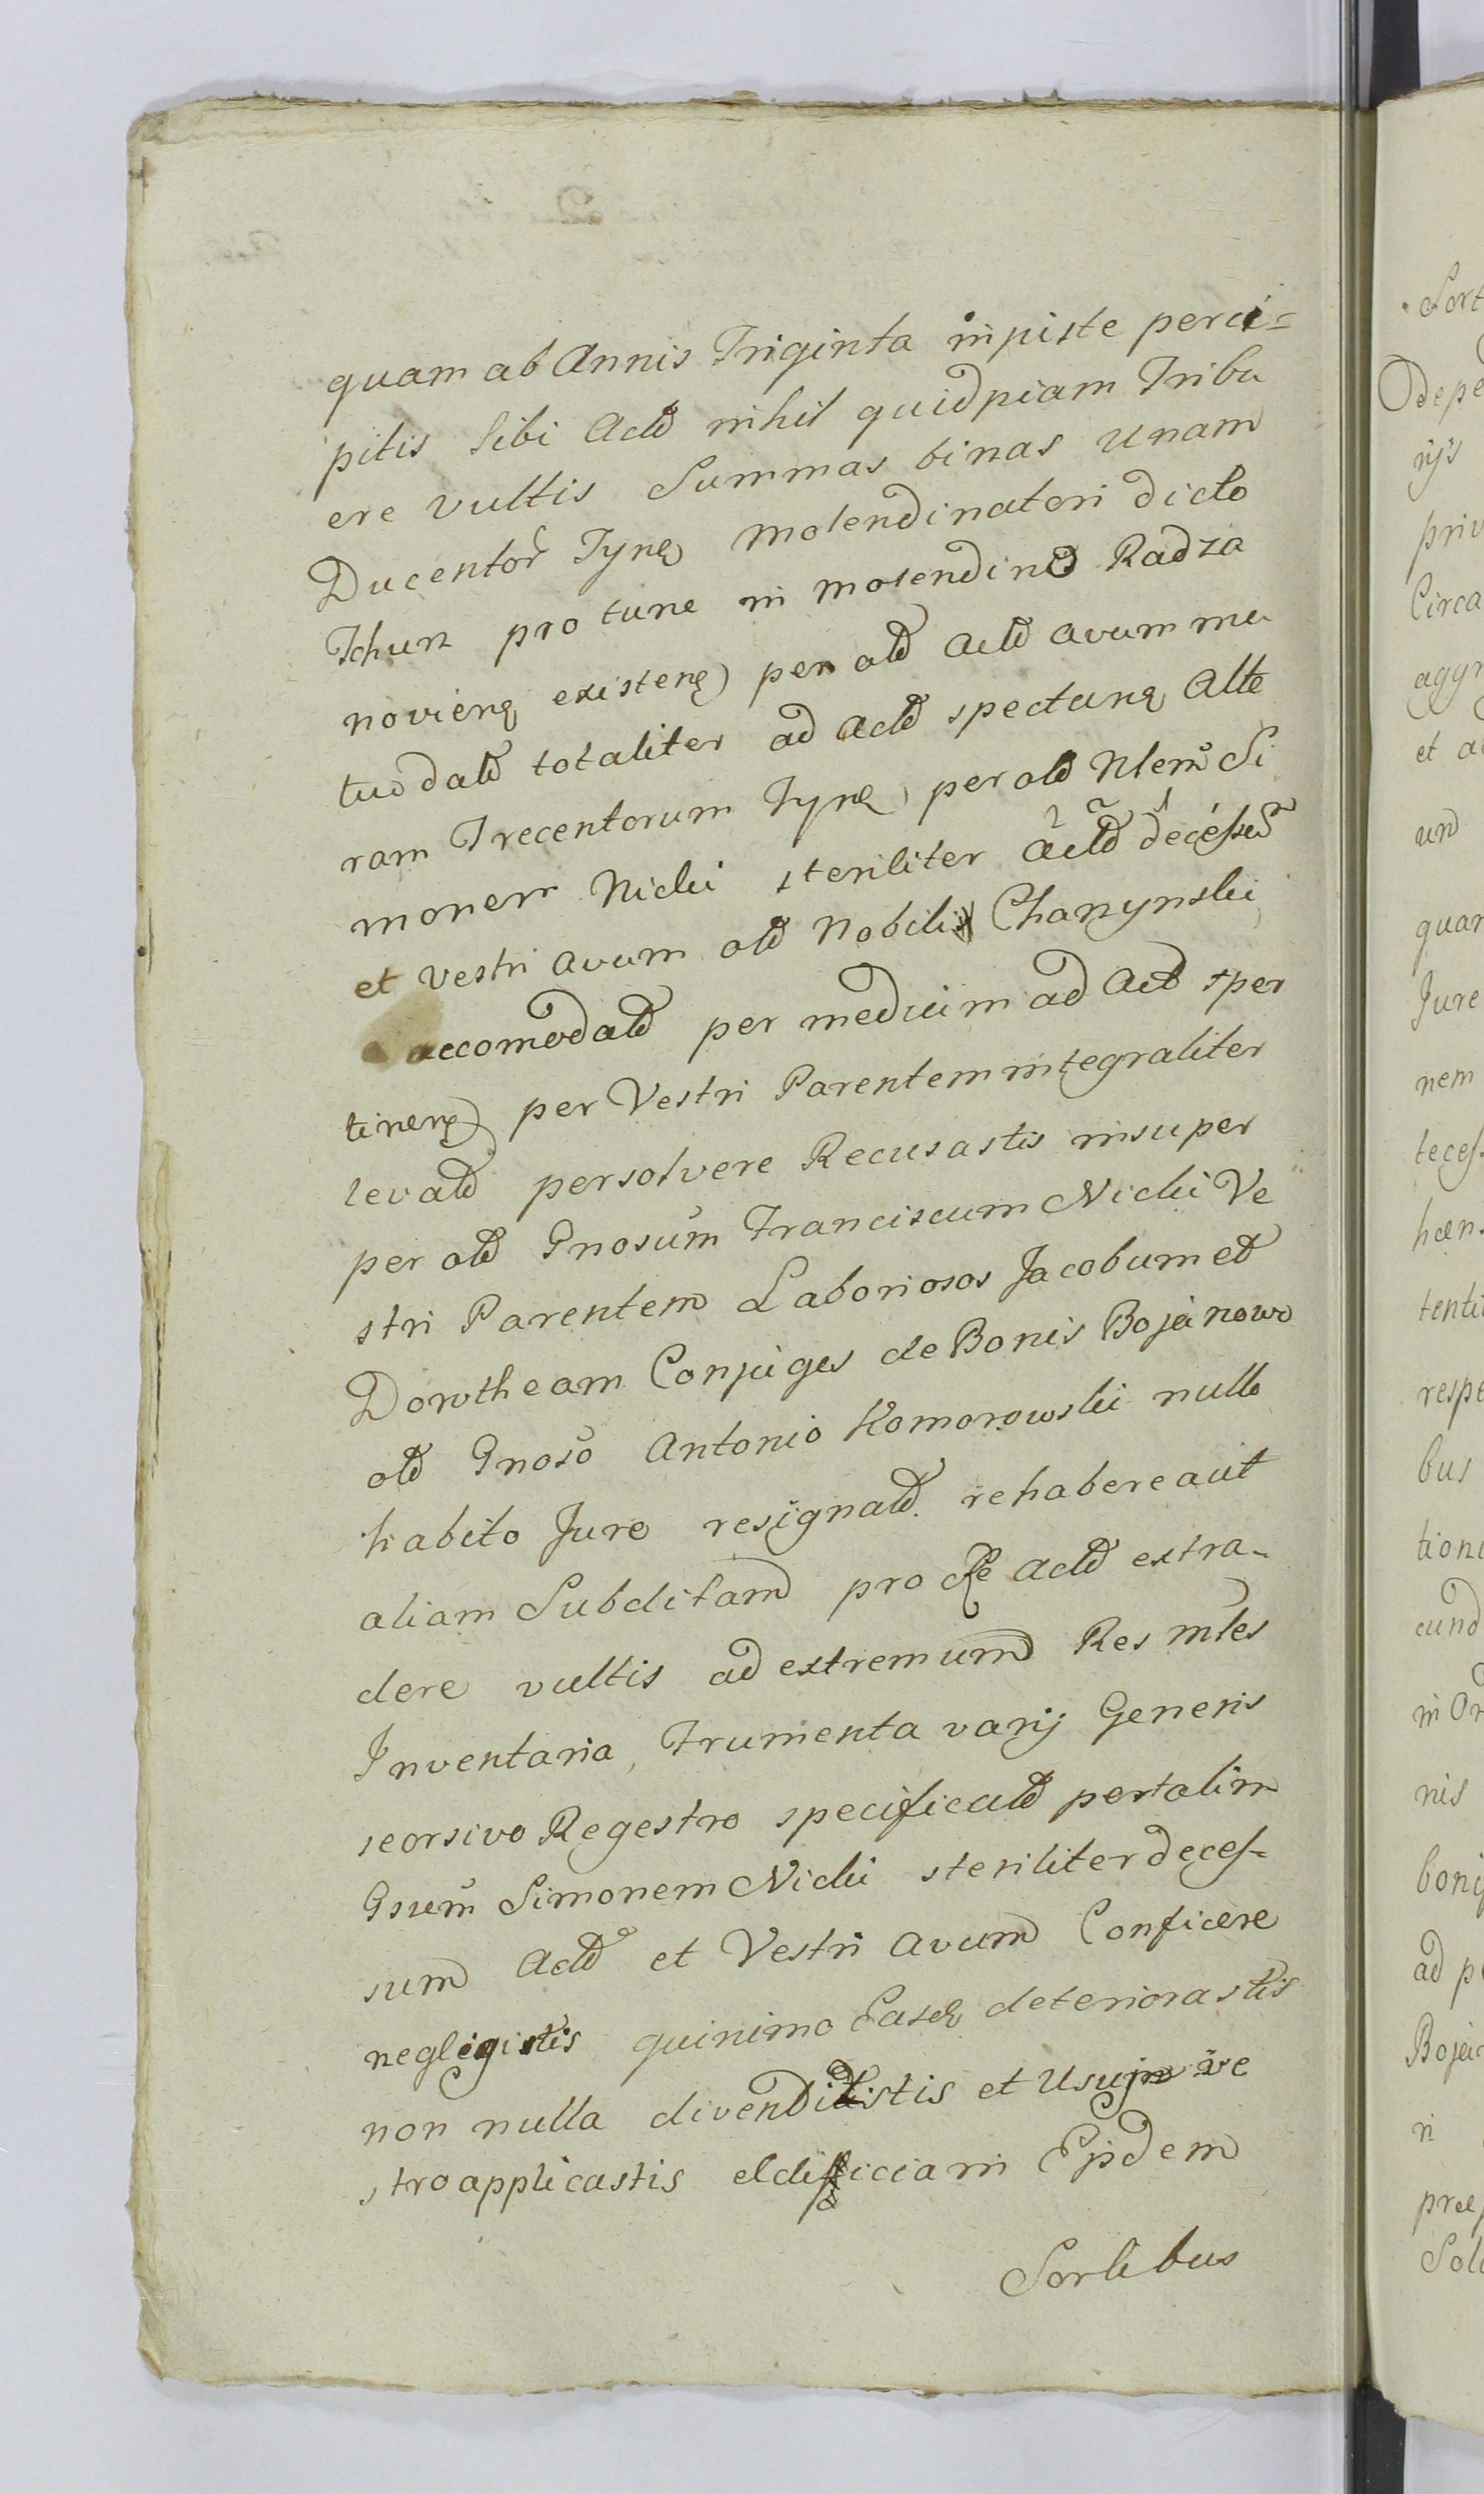 quam ab Annis Triginta injuste perci=
pitis Sibi Actð nihil quidpiam Tribu
ere vultis Summas binas unam
Ducentor̃ Tynę Molendinatori dicto
Tchurz pro tunc in molendino Radza
novienę existenę per olð Actð avum mu
tuo datð totaliter ad Actð spectanę Alte
ram Trecentorum Tynę per olð Nlem̃ Si
monem Nieki steriliter Actð decessũ
et Vestri avum olð Nobili Charzynski
accomodatð per medium ad Actð sper
tinenę per Vestri Parentem integraliter
levatð persolvere Recusastis insuper
per olð Gnosum̃ Franciscum Nicki Ve
stri Parentem Laboriosos Jacobum et
Dorotheam Conjuges de Bonis Bojanowo
olð Gnosõ Antonio Komorowski nullo
habito Jure resignatð rehabere aut
aliam Subditam pro se Actð extra-
dere vultis ad extremum Res m̃les
Inventaria, Frumenta varij Generis
seorsivo Regestro specificatð post olim
Gsum̃ Simonem Nicki steriliter deces=
sum Actð et Vestri avum Conficere
negligistis quinimo Easdę deteriorastis
non nulla divendidistis et Usui ve
stro applicastis Aedificia in Ejsdem
Sortibus
. Sort
Depe
rijs
priv
Circa
aggr
et a
und
quar
Jure
nem
teces
hæn
tenti
respe
bus
tion
cund
in Or
nis
boni
ad p
Boja
n
præ
Sol